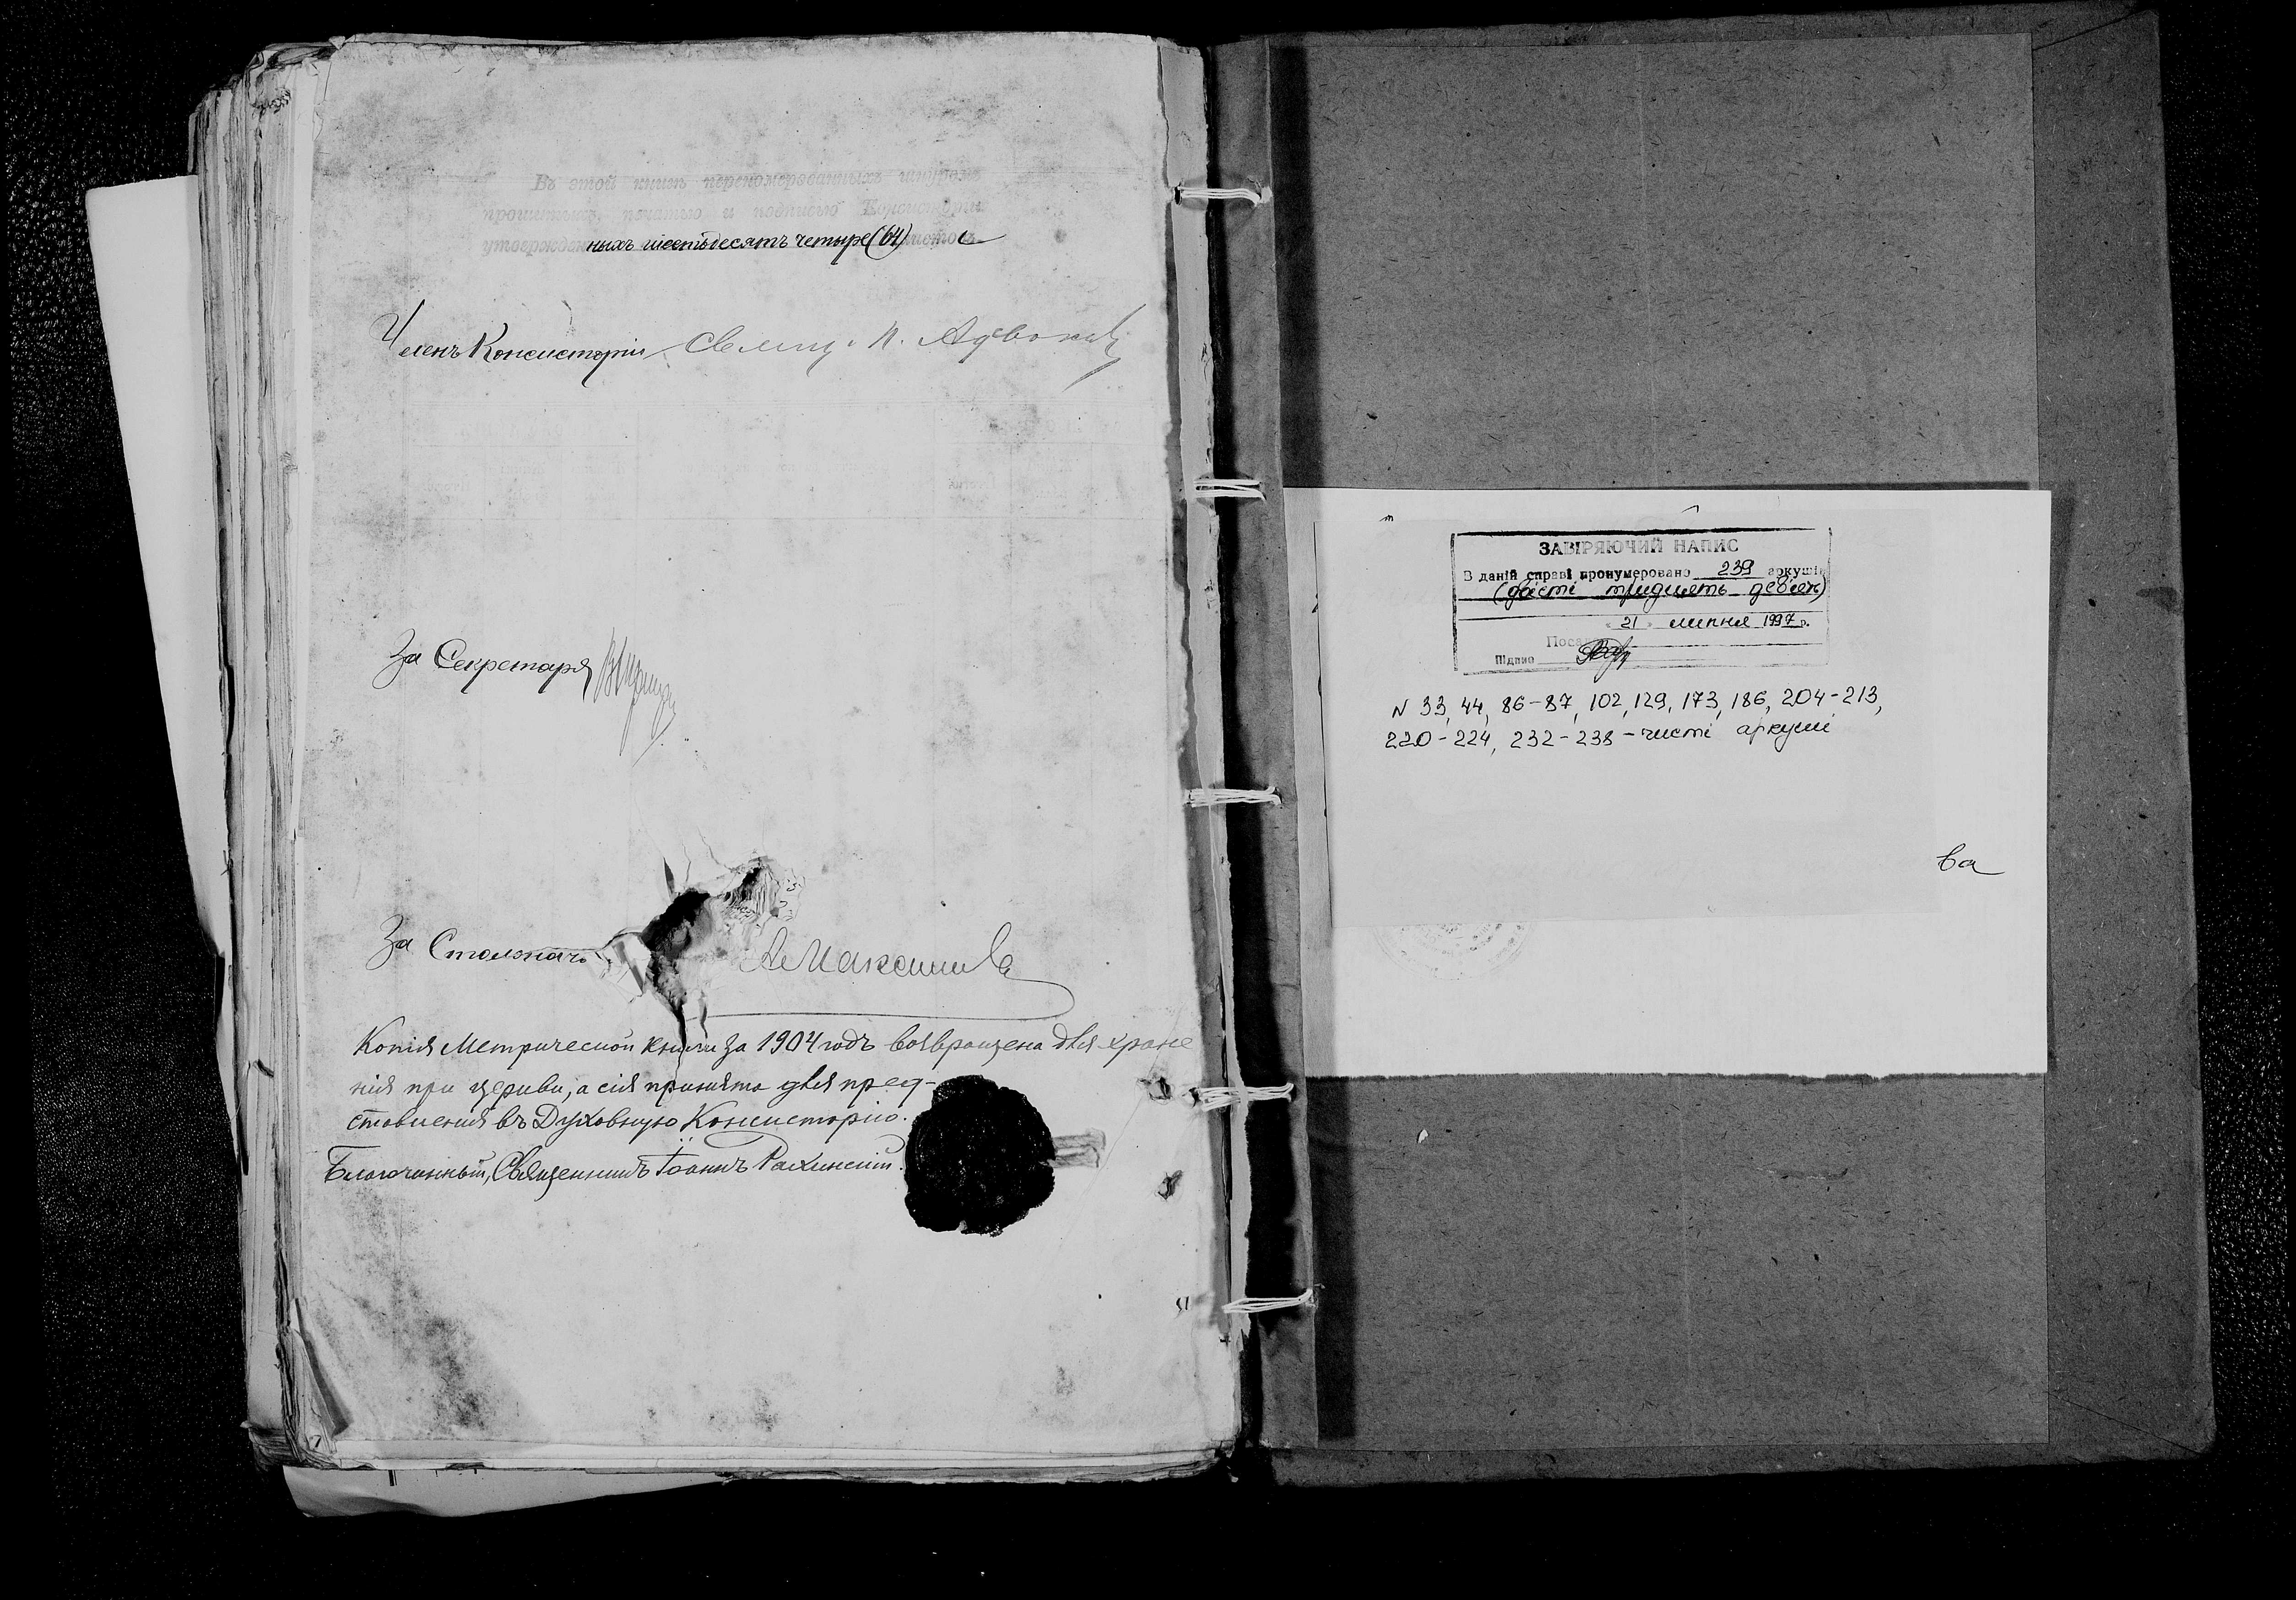 Въ этой книгѣ перенумерованныхъ шнуромъ
прошитыхъ, печатью и подписью Консисторіи
утвержденныхъ шестьдесятъ четыре (64) листовъ
Членъ Консисторіи Свящ. П.
За Секретаря
За Столонач.
А Максимов
Копія Метрической книги за 1904 годъ возвращена для хране
нія при церкви, а сія принята для пред-
ставленія въ Духовную Консисторію.
Благочинный, Священникъ Іоаннъ
ЗАВІРЯЮЧИЙ НАПИС
В даній справі пронумеровано 239 аркушів
(двісті тридцять девять)
21 липня 1997 р.
Підпис
N 33, 44, 86-87, 102, 129, 173, 186, 204-213,
220-224, 232-238 - чисті аркуші
ва